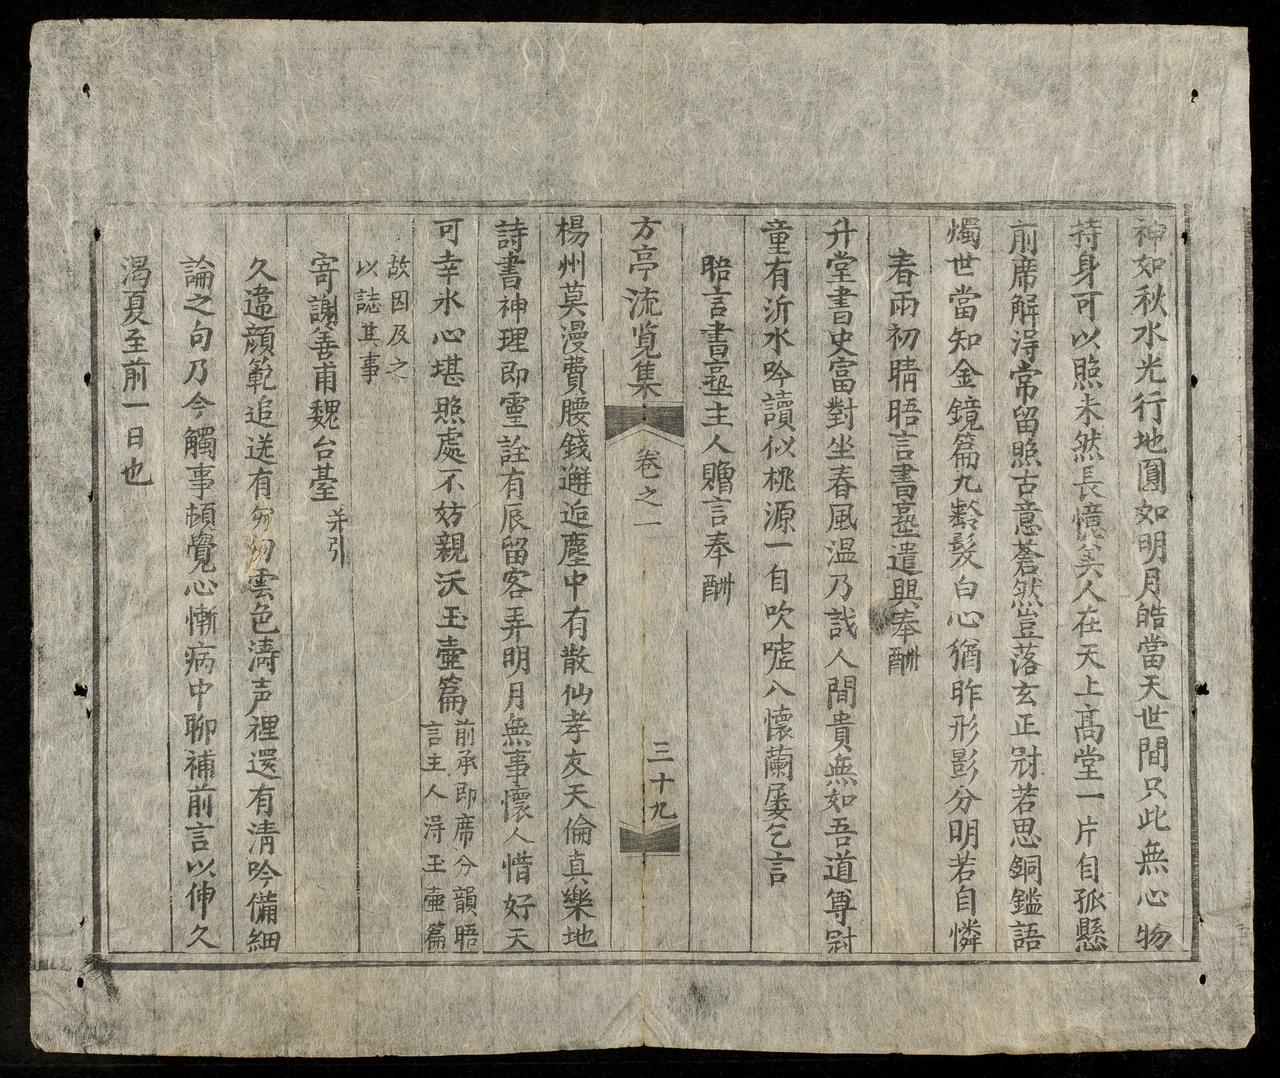 神如秋水光行地圓如明月皓當天世間只此無心物
持身可以照未然長憶美人在天上高堂一片自孤懸
前席解淂常留照古意蒼然豈落玄正冠若思銅鑑語
燭世當知金鏡篇九齡髮白心猶昨形影分明若自憐
春雨初晴晤言書塾遣興奉酬
升堂書史富對坐春風温乃哉人間貴無如吾道尊冠
童有沂水吟讀似桃源一自吹噓八懷蘭屡乞言
晤言書塾主人贈言奉酬
方亭流覧集 卷之一 三十九
楊州莫漫費腰錢邂逅塵中有散仙孝友天倫真樂地
詩書神理即霊詮有辰留客弄明月無事懷人惜好天
可幸氷心堪照處不妨親沃玉壷篇
前承即席分韻晤
言主人淂玉壷篇
故因及之
以誌其事
寄謝善甫魏台臺
并引
久違顔範追送有匆匆雲色濤声裡還有清吟備細
論之句乃今觸事頓覺心慚病中聊補前言以伸久
渴夏至前一日也